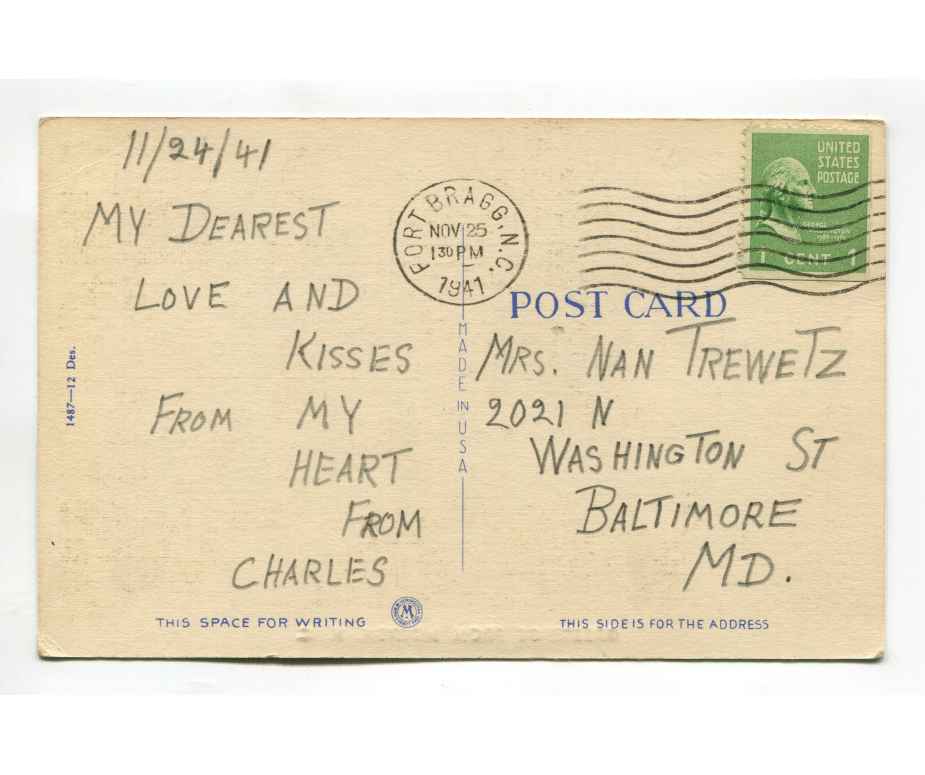 11/24/41
MY DEAREST
LOVE AND
KISSES
FROM MY
HEART
FROM
CHARLES
1487—12 Des.
THIS SPACE FOR WRITING
M
MADE IN USA
FORT BRAGG, N.C.
NOV 25
1 30 PM
1941
UNITED
STATES
POSTAGE
GEORGE
1 CENT 1
POST CARD
MRS. NAN TREWETZ
2021 N
WASHINGTON ST
BALTIMORE
MD.
THIS SIDE IS FOR THE ADDRESS